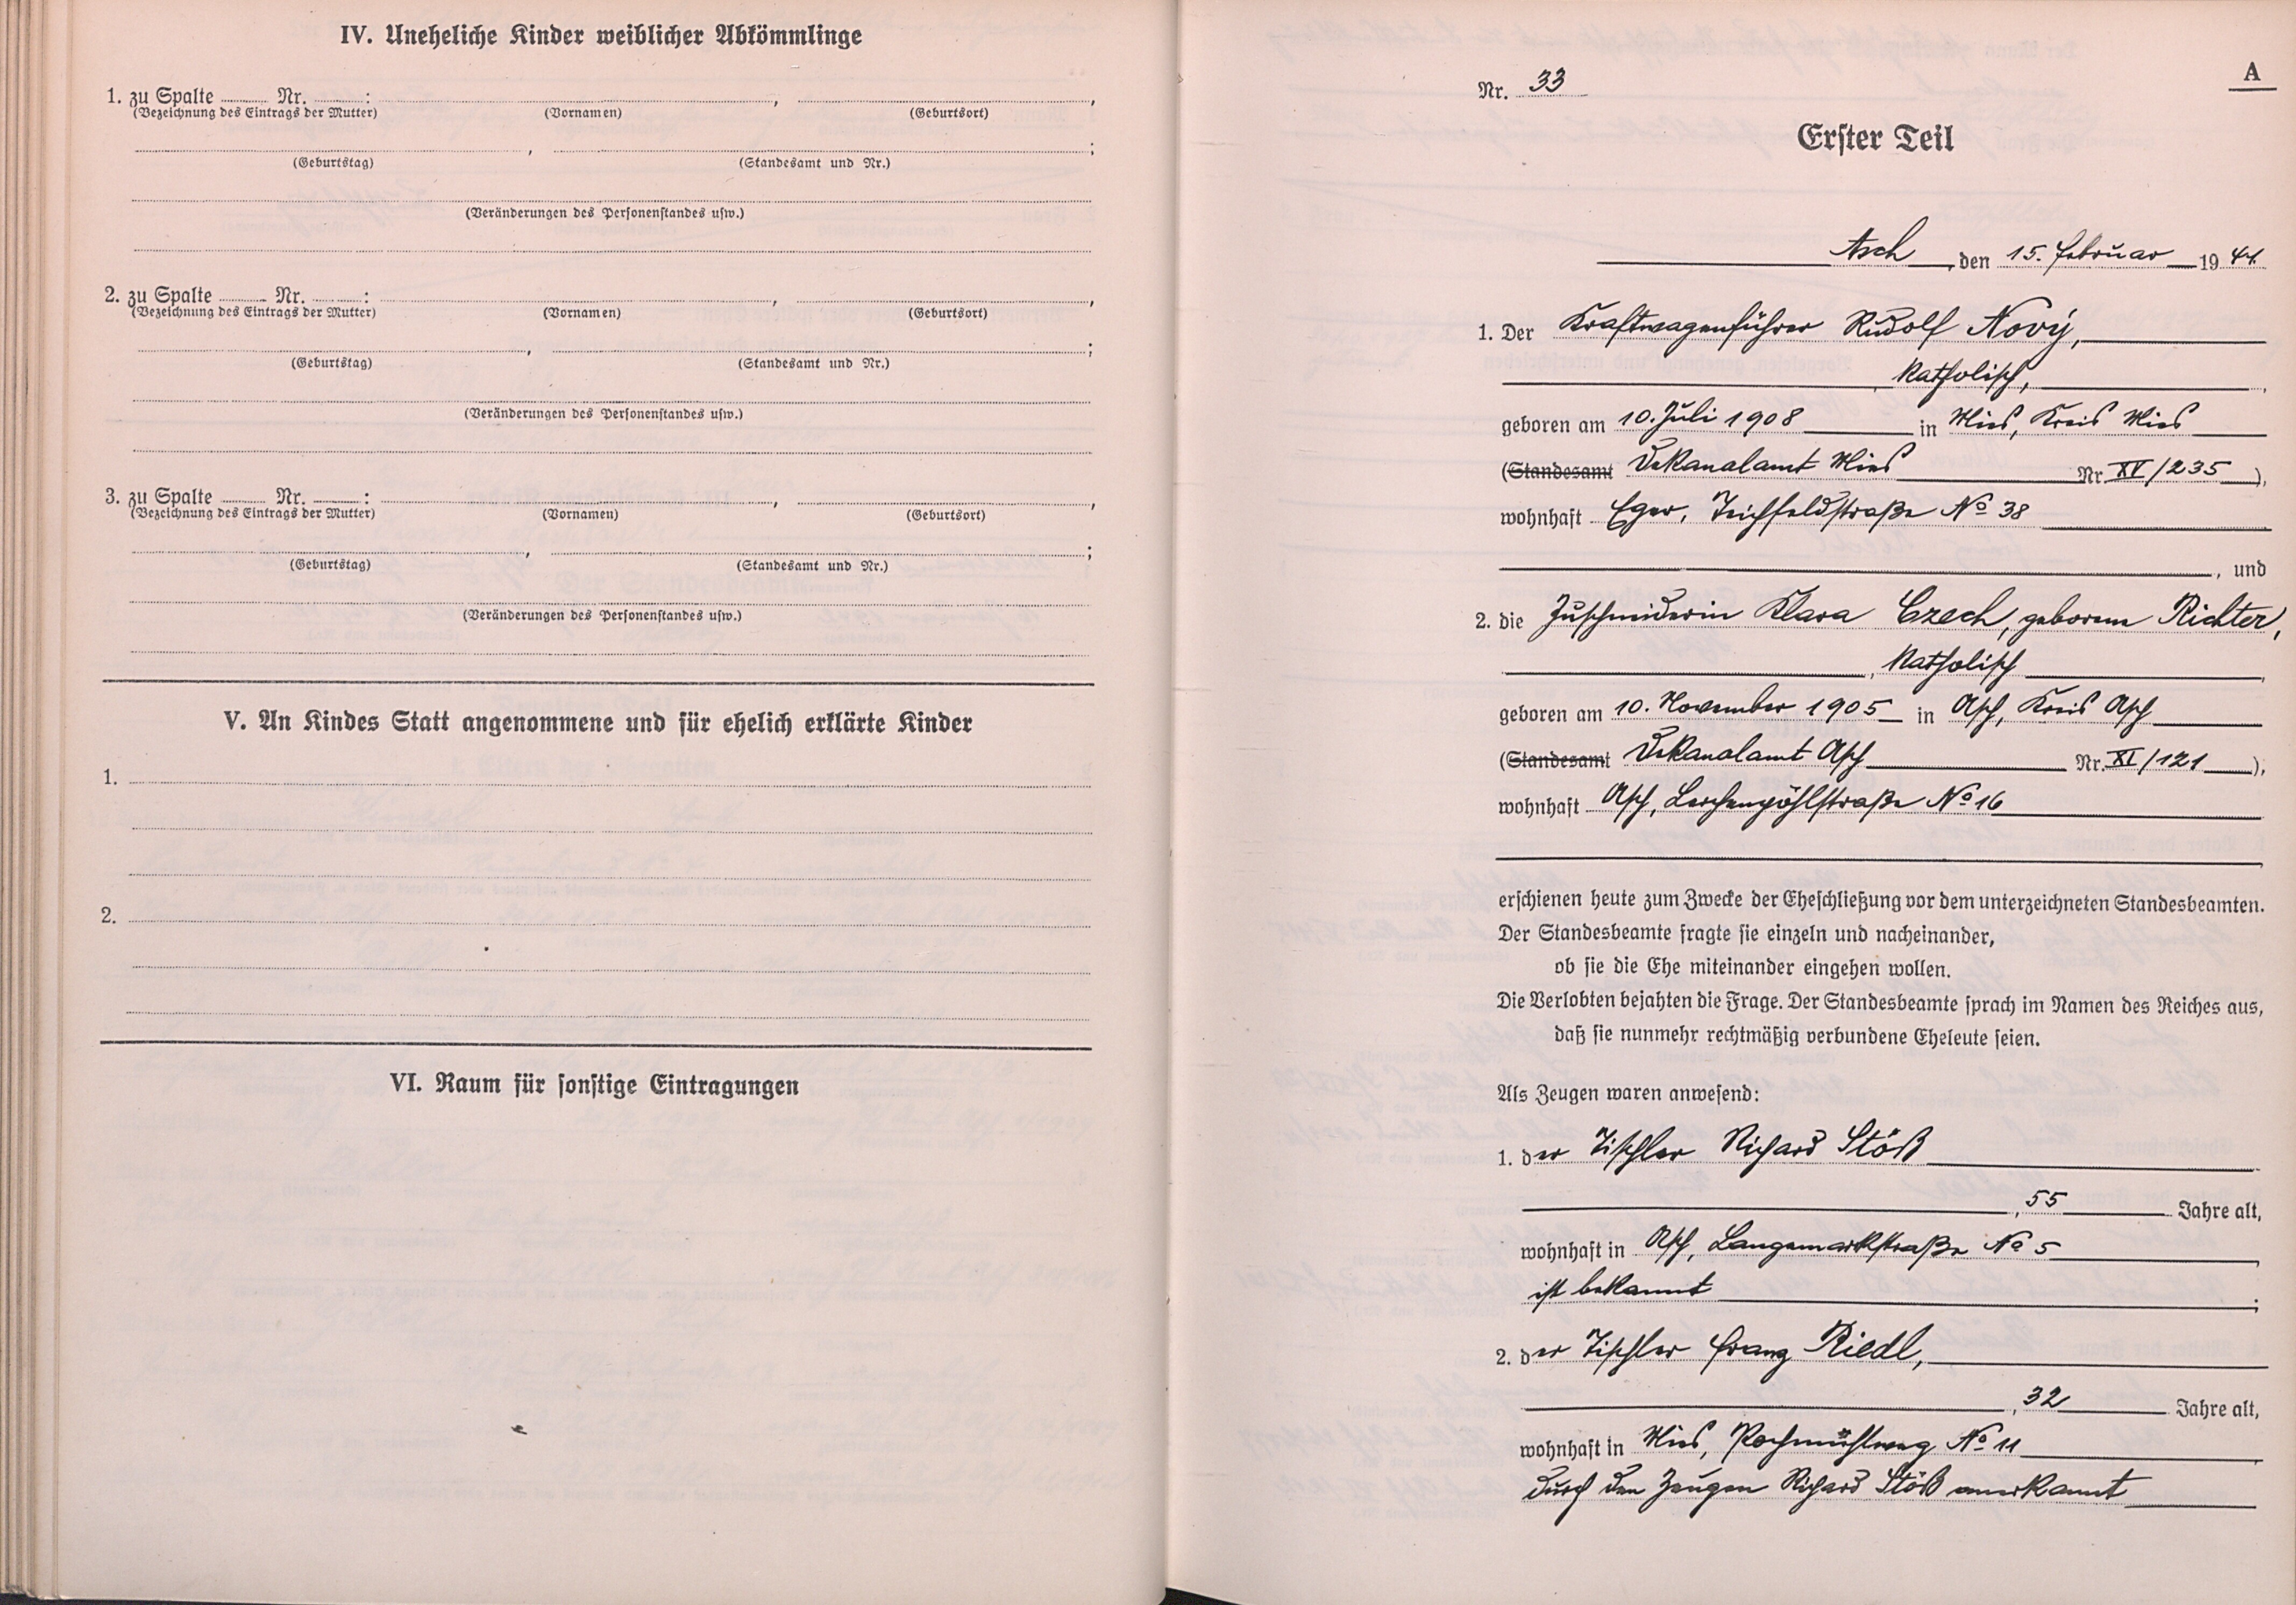 IV. Uneheliche Kinder weiblicher Abkömmlinge
1. zu Spalte ........ Nr. ........ : ........ , ........ ,
(Bezeichnung des Eintrags der Mutter) (Vornamen) (Geburtsort)
........ , ........ ;
(Geburtstag) (Standesamt und Nr.)
(Veränderungen des Personenstandes usw.)
2. zu Spalte ........ Nr. ........ : ........ , ........ ,
(Bezeichnung des Eintrags der Mutter) (Vornamen) (Geburtsort)
........ , ........ ;
(Geburtstag) (Standesamt und Nr.)
(Veränderungen des Personenstandes usw.)
3. zu Spalte ........ Nr. ........ : ........ , ........ ,
(Bezeichnung des Eintrags der Mutter) (Vornamen) (Geburtsort)
........ , ........ ;
(Geburtstag) (Standesamt und Nr.)
(Veränderungen des Personenstandes usw.)
V. An Kindes Statt angenommene und für ehelich erklärte Kinder
1.
2.
VI. Raum für sonstige Eintragungen
A
Nr. 33
Erster Teil
Asch, den 15. Februar 1944
1. Der Kraftwagenführer Rudolf Nový,
, katholisch,
geboren am 10. Juli 1908 in Mies, Kreis Mies
(Standesamt Dekanalamt Mies Nr. XV/235),
wohnhaft Eger, Teichfeldstraße No 38
, und
2. die Zuschneiderin Klara Czech, geborene Richter,
, katholisch,
geboren am 10. November 1905 in Asch, Kreis Asch
(Standesamt Dekanalamt Asch Nr. XI/121),
wohnhaft Asch, Lerchenpöhlstraße No 16
erschienen heute zum Zwecke der Eheschließung vor dem unterzeichneten Standesbeamten.
Der Standesbeamte fragte sie einzeln und nacheinander,
ob sie die Ehe miteinander eingehen wollen.
Die Verlobten bejahten die Frage. Der Standesbeamte sprach im Namen des Reiches aus,
daß sie nunmehr rechtmäßig verbundene Eheleute seien.
Als Zeugen waren anwesend:
1. der Tischler Richard Stöß
, 55 Jahre alt,
wohnhaft in Asch, Langemarkstraße No 5,
ist bekannt ;
2. der Tischler Franz Riedl,
, 32 Jahre alt,
wohnhaft in Mies, Rochmühlweg No 11,
durch den Zeugen Richard Stöß anerkannt